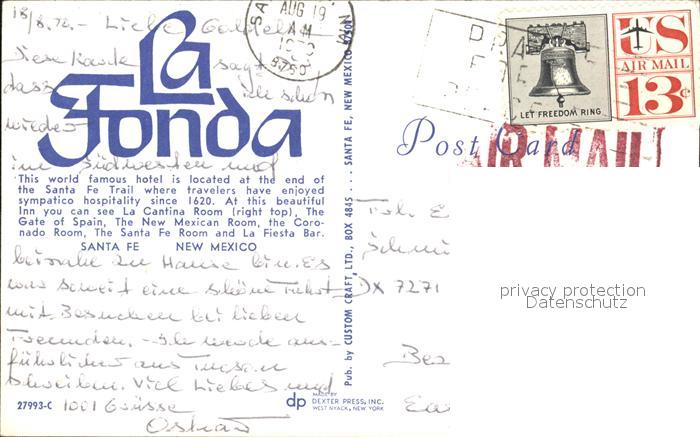 18/8.72. - Liebe
Diese Karte sagt
dass ich schon
wieder
La
Fonda
im Südwesten und
This world famous hotel is located at the end of
the Santa Fe Trail where travelers have enjoyed
sympatico hospitality since 1620. At this beautiful
Inn you can see La Cantina Room (right top), The
Gate of Spain, The New Mexican Room, the Coro-
nado Room, The Santa Fe Room and La Fiesta Bar.
SANTA FE NEW MEXICO
beinahe zu Hause bin. Es
war soweit eine schöne Fahrt
mit Besuchen bei lieben
Freunden. - Ich werde aus-
führlicher aus Tucson
schreiben. Viel Liebes und
1001 Grüsse
27993-C
Pub. by CUSTOM CRAFT, LTD., BOX 4845 . . . SANTA FE, NEW MEXICO
MADE BY
dp DEXTER PRESS, INC.
WEST NYACK, NEW YORK
AUG 19
AM
LET FREEDOM RING
US
AIR MAIL
13c
Post Card
AIR MAIL
DX 7271
privacy protection
Datenschutz